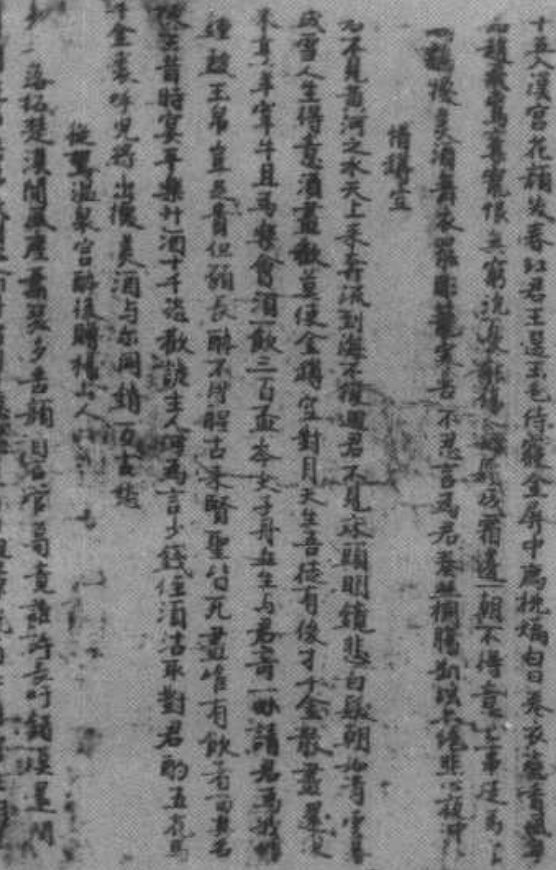 十五入漢宮花顏笑春紅君王選玉色侍寢金屏中薦枕嬌白日卷衣戀香風寧
知趙飛鷰奪寵恨無窮沈憂能傷人綠鬢成霜蓬一朝不得意世事徒為空
鷫鸘換美酒舞衣罷彫籠寒苦不忍言為君奏絲桐腸斷絃亦絕悲心夜忡
惜罇空
君不見黃河之水天上來奔流到海不復迴君不見床頭明鏡悲白髮朝如青雲暮
成雪人生得意須盡歡莫使金罇空對月天生吾徒有俊才千金散盡還復
來烹羊宰牛且為樂會須一飲三百盃岑夫子丹丘生与君哥一曲請君為我傾
鍾鼓玉帛豈足貴但願長醉不用醒古來賢聖皆死盡唯有飲者留其名
陳王昔時宴平樂斗酒十千恣歡謔主人何為言少錢徑須沽取對君酌五花馬
千金裘呼兒將出換美酒与尔同銷万古愁
從駕溫泉宮醉後贈楊山人
少年落拓楚漢間風塵蕭瑟多苦顏自言管葛竟誰許長吁錯漠還閉